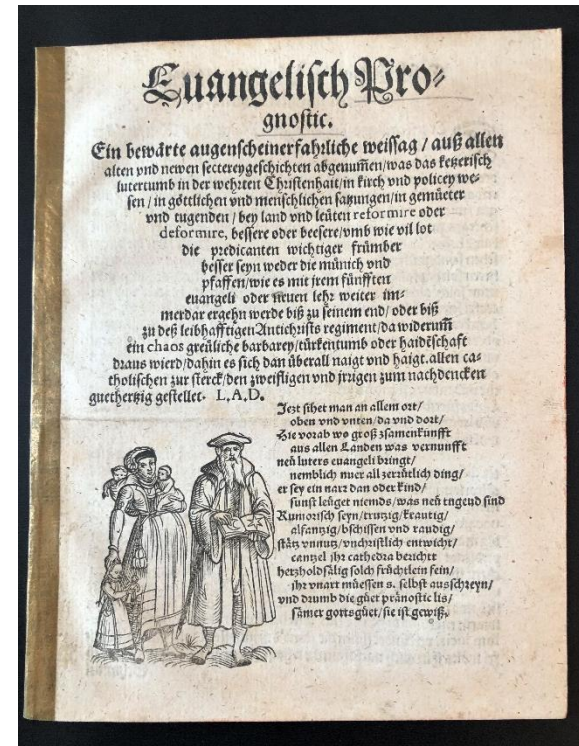 Euangelisch Pro-
gnostic.
Ein bewärte augenscheinerfahrliche weissag / auß allen
alten vnd newen sectereygeschichten abgenum̃en/was das ketzerisch
lutertumb in der wehrten Christenhait/in kirch vnd policey we-
sen / in göttlichen vnd menschlichen satzungen/in gemüeter
vnd tugenden / bey land vnd leüten reformire oder
deformire, bessere oder beesere/vmb wie vil lot
die predicanten wichtiger frümber
besser seyn weder die münich vnd
pfaffen/wie es mit jrem fünfften
euangeli oder neuen lehr weiter im-
merdar ergehn werde biß zu seinem end/ oder biß
zu deß leibhafftigen Antichrists regiment/da widerum̃
ein chaos greüliche barbarey/türkentumb oder haidẽschafft
draus wierd/dahin es sich dan überall naigt vnd haigt.allen ca-
tholischen zur sterck/den zweifligen vnd jrrigen zum nachdencken
guethertzig gestellet. L.A.D.
Jezt sihet man an allem ort/
oben vnd vnten/da vnd dort/
Hie vorab wo groß zsamenkunfft
aus allen Landen was vernunfft
neü luters euangeli bringt/
nemblich nuer all zerrütlich ding/
er sey ein narr dan oder kind/
sunst leüget niemds/was neü tugend sind
Rumorisch seyn/trutzig/krautig/
alfantzig/bschissen vnd raudig/
stätz vnnutz/vnchristlich entwicht/
cantzel jhr cathedra bericht
hertzholdsälig solch früchtlein fein/
jhr vnart müessen s. selbst ausschreyn/
vnd drumb die güet pränostic lis/
sämer gottsgüet/sie ist gewiß.